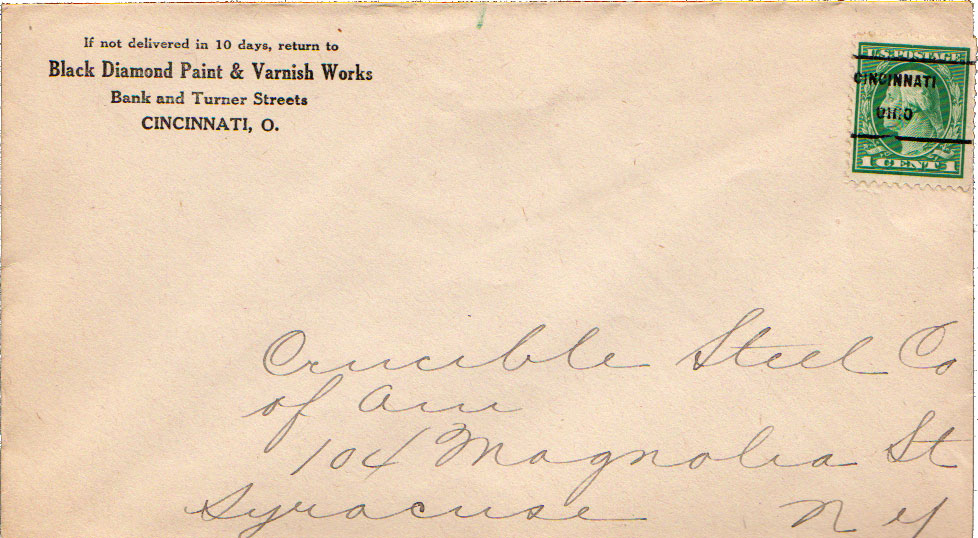 If not delivered in 10 days, return to
Black Diamond Paint & Varnish Works
Bank and Turner Streets
CINCINNATI, O.
U.S. POSTAGE
CINCINNATI
OHIO
1 CENT 1
Crucible Steel Co
of Am
104 Magnolia St
Syracuse N Y